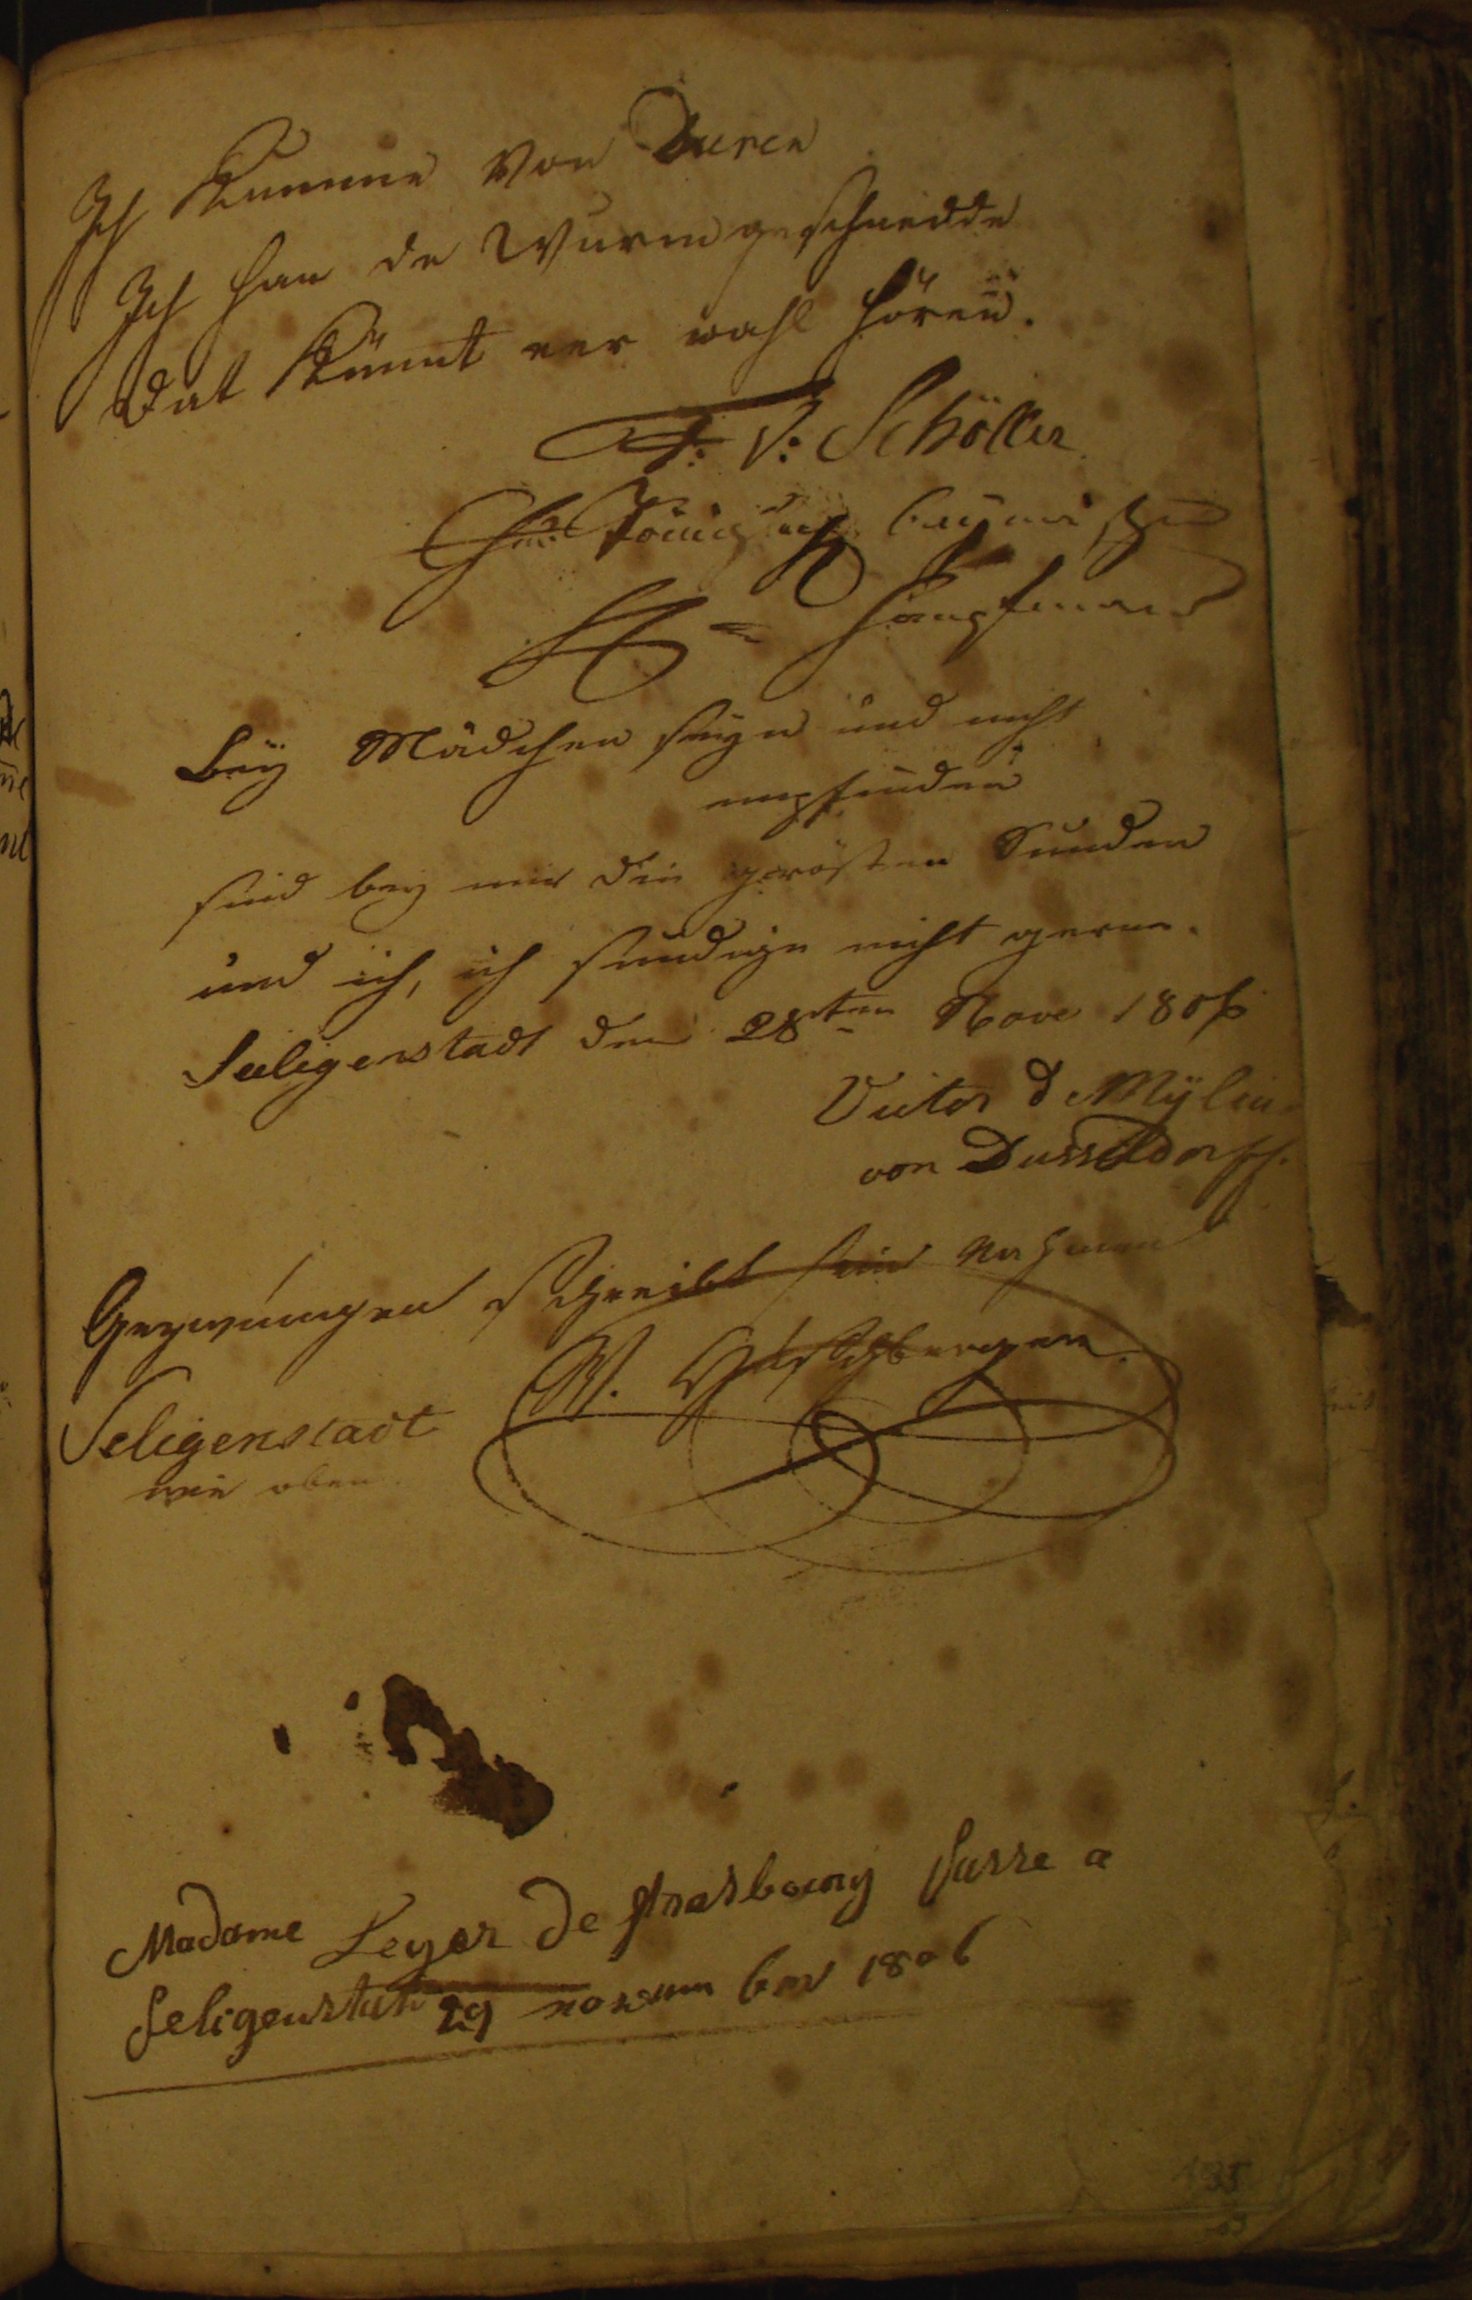 Ich kumme von Duren
Ich han de Wurm geschnedde
Dat künnt eer wahl hören.
F: V: Schöller
Königlich bayerischer
Hauptmann
Bey Mädchen seyn und nicht
empfinden
sind bey mir die grösten Sunden
und ich, ich sundige nicht gerne.
Seeligenstadt den 28ten Nove 1806
Victor d Mylius
von Dusseldorff.
Gezwungen schreibt sein Nahmen
W.
Seligenstadt
wie oben.
Madame Leyer de strasbourg passe a
Seligenstat 29 novembre 1806